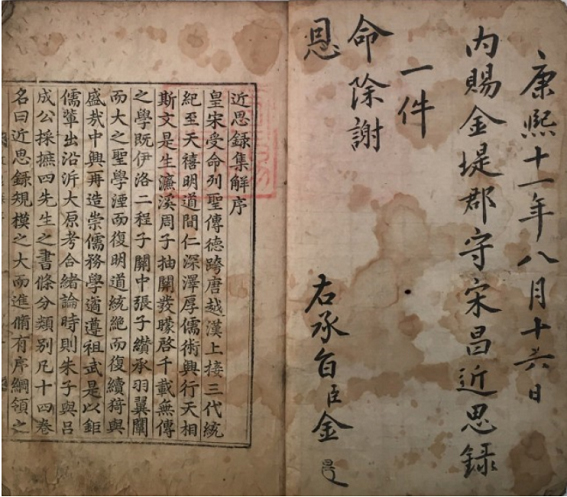 康熙十一年八月十六日
內賜金堤郡守宋昌近思錄
一件
命除謝
恩
右承旨臣金
近思錄集解序
皇宋受命列聖傳德跨唐越漢上接三代統
紀至天禧明道間仁深澤厚儒術興行天相
斯文是生濂溪周子抽關發矇啓千載無傳
之學既伊洛二程子關中張子纘承羽翼闡
而大之聖學湮而復明道統絶而復續猗與
盛哉中興再造崇儒務學遹遵祖武是以鉅
儒輩出沿泝大原考合緒論時則朱子與呂
成公採摭四先生之書條分類別凡十四卷
名曰近思錄規模之大而進脩有序綱領之